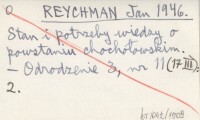 REYCHMAN Jan 1946.
Stan i potrzeby wiedzy o
powstaniu chochołowskim.
– Odrodzenie 3, nr 11 (17 III).
2.